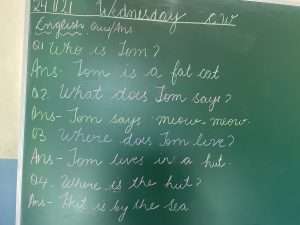 24/11/21 Wednesday C.W
English Ques/Ans
Q1 Who is Tom?
Ans- Tom is a fat cat.
Q2. What does Tom says?
Ans- Tom says 'meow-meow.
Q3 Where does Tom live?
Ans- Tom lives in a hut.
Q4. Where is the hut?
Ans- Hut is by the sea